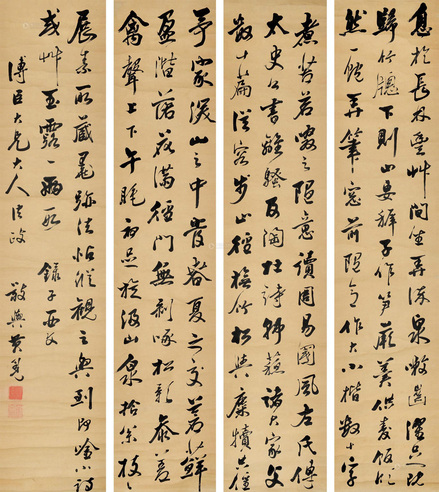 予家深山之中當春夏之交蒼蘚
盈階落花滿徑門無剥啄松影參差
禽聲上下午睡初足旋汲山泉拾松枝
煮苦茗啜之隨意讀周易國風左氏傳
太史公書離騷及陶杜詩韓蘇諸大家文
數十篇從容步山徑撫竹松與麋犢共偃
息於長林豐艸間坐弄流泉漱齒濯足既
歸竹牕下則山妻稺子作笋蕨羹供麥飯欣
然一飽弄筆窗前隨意作大小楷數十字
展素所藏墨跡法帖縱觀之興到即吟小詩
或艸玉露一兩段 錄子西文
溥臣大兄大人法政
敬輿黃